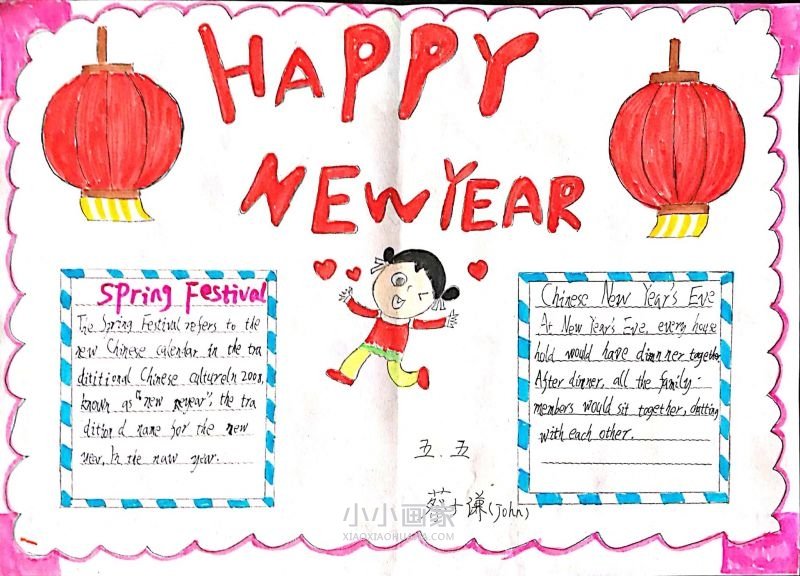 HAPPY
NEW YEAR
Spring Festival
The Spring Festival refers to the
new Chinese calendar in the tra
dititional Chinese cultureIn 2008,
known as "new neyear", the tra
dition d name for the new
year, In the naw year.
Chinese New Year's Eve
At New Year's Eve, every house
hold would have dimnner together
After dinner, all the family
members would sit together, chatting
with each other.
五.五
蔡士谦(John)
小小画家
XIAOXIAOHUAJIA.COM